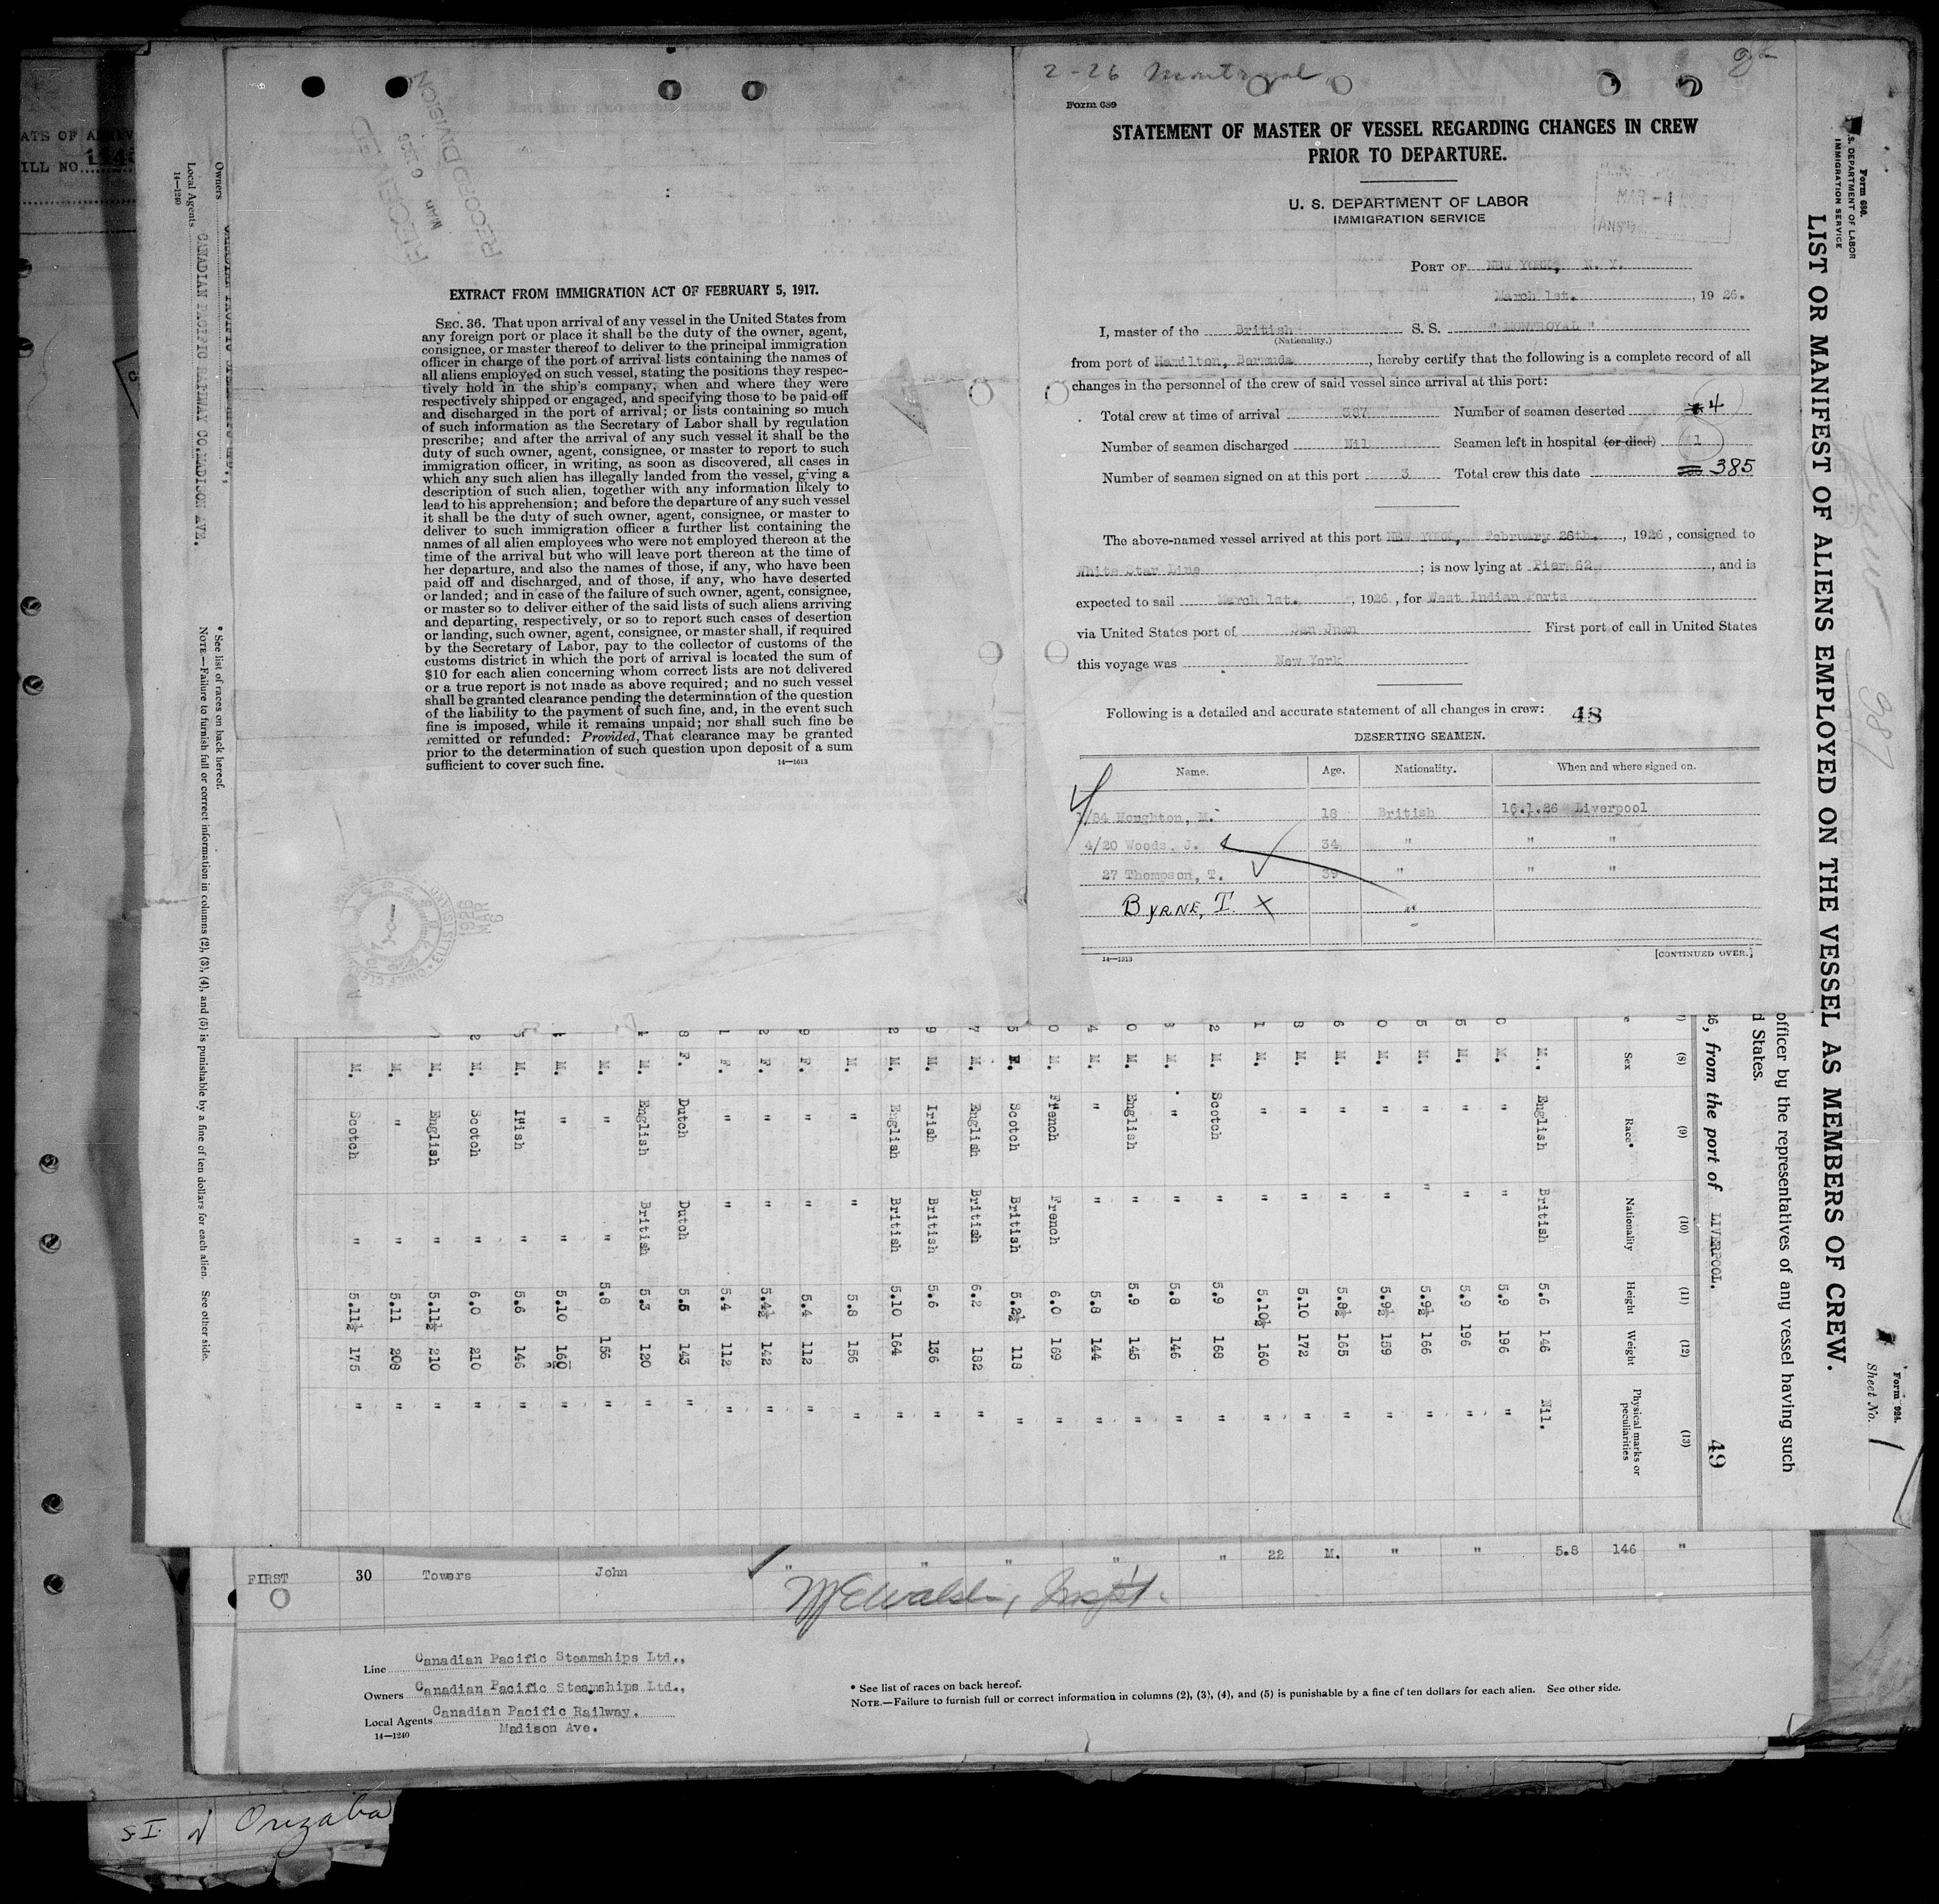 2-26 Montroyal
Form 689
STATEMENT OF MASTER OF VESSEL REGARDING CHANGES IN CREW
PRIOR TO DEPARTURE.
U. S. DEPARTMENT OF LABOR
IMMIGRATION SERVICE
MAR -4
PORT OF NEW YORK, N. Y.
March 1st. , 1926.
I, master of the British S. S. "MONTROYAL"
(Nationality.)
from port of Hamilton, Barmuda , hereby certify that the following is a complete record of all
changes in the personnel of the crew of said vessel since arrival at this port:
Total crew at time of arrival 387 Number of seamen deserted 4
Number of seamen discharged Nil Seamen left in hospital (or died) 1
Number of seamen signed on at this port 3 Total crew this date 385
The above-named vessel arrived at this port NEW YORK, February 26th. , 1926 , consigned to
White Star Line ; is now lying at Pier 62 , and is
expected to sail March 1st. , 1926 , for West Indian Ports
via United States port of San Juan First port of call in United States
this voyage was New York
Following is a detailed and accurate statement of all changes in crew: 48
DESERTING SEAMEN.
Name. Age. Nationality. When and where signed on.
/84 Houghton, M. 18 British 16.1.26 Liverpool
4/20 Woods, J. 34 " " "
27 Thompson, T. 39 " " "
BYRNE, T. X "
14—1313
[CONTINUED OVER.]
RECEIVED
MAR 6 1926
RECORD DIVISION
EXTRACT FROM IMMIGRATION ACT OF FEBRUARY 5, 1917.
SEC. 36. That upon arrival of any vessel in the United States from
any foreign port or place it shall be the duty of the owner, agent,
consignee, or master thereof to deliver to the principal immigration
officer in charge of the port of arrival lists containing the names of
all aliens employed on such vessel, stating the positions they respec-
tively hold in the ship's company, when and where they were
respectively shipped or engaged, and specifying those to be paid off
and discharged in the port of arrival; or lists containing so much
of such information as the Secretary of Labor shall by regulation
prescribe; and after the arrival of any such vessel it shall be the
duty of such owner, agent, consignee, or master to report to such
immigration officer, in writing, as soon as discovered, all cases in
which any such alien has illegally landed from the vessel, giving a
description of such alien, together with any information likely to
lead to his apprehension; and before the departure of any such vessel
it shall be the duty of such owner, agent, consignee, or master to
deliver to such immigration officer a further list containing the
names of all alien employees who were not employed thereon at the
time of the arrival but who will leave port thereon at the time of
her departure, and also the names of those, if any, who have been
paid off and discharged, and of those, if any, who have deserted
or landed; and in case of the failure of such owner, agent, consignee,
or master so to deliver either of the said lists of such aliens arriving
and departing, respectively, or so to report such cases of desertion
or landing, such owner, agent, consignee, or master shall, if required
by the Secretary of Labor, pay to the collector of customs of the
customs district in which the port of arrival is located the sum of
$10 for each alien concerning whom correct lists are not delivered
or a true report is not made as above required; and no such vessel
shall be granted clearance pending the determination of the question
of the liability to the payment of such fine, and, in the event such
fine is imposed, while it remains unpaid; nor shall such fine be
remitted or refunded: Provided, That clearance may be granted
prior to the determination of such question upon deposit of a sum
sufficient to cover such fine.
14—1613
Form 680.
U.S. DEPARTMENT OF LABOR
IMMIGRATION SERVICE
LIST OR MANIFEST OF ALIENS EMPLOYED ON THE VESSEL AS MEMBERS OF CREW.
Form 924.
Sheet No. 1
officer by the representatives of any vessel having such
d States.
26, from the port of LIVERPOOL. 49
(8) (9) (10) (11) (12) (13)
Sex Race* Nationality Height Weight Physical marks or peculiarities
M. English British 5.6 146 Nil.
M. " " 5.9 196 "
M. " " 5.9 196 "
M. " " 5.9½ 166 "
M. " " 5.9½ 159 "
M. " " 5.8½ 165 "
M. " " 5.10 172 "
M. " " 5.10½ 160 "
M. Scotch " 5.9 168 "
M. " " 5.8 146 "
M. English " 5.9 145 "
M. " " 5.8 144 "
M. French French 6.0 169 "
F. Scotch British 5.2½ 118 "
M. English British 6.2 182 "
M. Irish British 5.6 136 "
M. English British 5.10 164 "
M. " " 5.8 156 "
F. " " 5.4 112 "
F. " " 5.4½ 142 "
F. " " 5.4 112 "
F. Dutch Dutch 5.5 143 "
M. English British 5.3 120 "
M. " " 5.8 156 "
M. " " 5.10 160 "
M. Irish " 5.6 146 "
M. Scotch " 6.0 210 "
M. English " 5.11½ 210 "
M. " " 5.11 208 "
M. Scotch " 5.11½ 175 "
* See list of races on back hereof.
NOTE.—Failure to furnish full or correct information in columns (2), (3), (4), and (5) is punishable by a fine of ten dollars for each alien. See other side.
Owners
Local Agents CANADIAN PACIFIC RAILWAY CO. MADISON AVE.
14—1240
FIRST 30 Towers John " " " " " 22 M. " " 5.8 146 "
Line Canadian Pacific Steamships Ltd.,
Owners Canadian Pacific Steamships Ltd.,
Local Agents Canadian Pacific Railway.
Madison Ave.
14—1240
* See list of races on back hereof.
NOTE.—Failure to furnish full or correct information in columns (2), (3), (4), and (5) is punishable by a fine of ten dollars for each alien. See other side.
S.I. of Orizaba